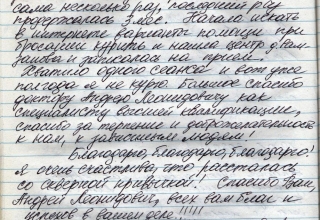 сама несколько раз, последний раз
продержалась 3 мес. Начала искать
в интернете варианты помощи при
бросании курить и нашла центр д.
и записалась на прием.
Хватило одного сеанса и вот уже
полгода я не курю. Большое спасибо
доктору Андрею Леонидовичу как
специалисту высшей квалификации,
спасибо за терпение и доброжелательность
к нам, к зависимым людям.
Благодарю, благодарю, благодарю!
Я очень счастлива, что рассталась
со скверной привычкой! Спасибо Вам,
Андрей Леонидович, всех вам благ и
успехов в вашем деле!!!!!